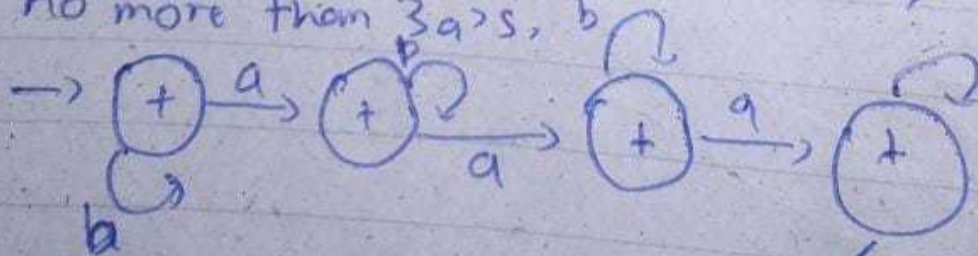 no more than 3a's, b
→ + a + b a + b a +
b